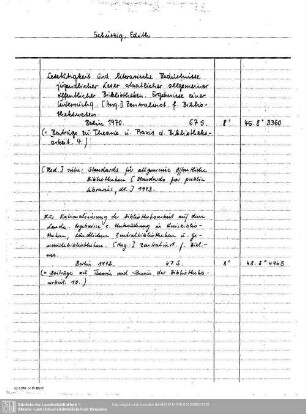 Scheissig, Edith
Lesetätigkeit und literarische Bedürfnisse
jugendlicher Leser staatlicher allgemeiner
öffentlicher Bibliotheken. Ergebnisse einer
Untersuchg. (Hrsg.) Zentralinst. f. Biblio-
thekswesen.
Berlin 1970. 67 S. 8° 45. 8° 3360
(= Beiträge zu Theorie u. Praxis d. Bibliotheks-
arbeit. 4.)
[Red.] siehe: Standards für allgemeine öffentliche
Bibliotheken [Standards for public
libraries, dt.] 1973.
Zur Rationalisierung der Bibliotheksarbeit auf dem
Lande. Ergebnisse e. Untersuchung in Kreisbiblio-
theken, ländlichen Zentralbibliotheken u. Ge-
meindebibliotheken. (Hrsg.) Zentralinst. f. Bibl.
Berlin 47 S. 8° 48. 8°
(= Beiträge zu Theorie und Praxis der Bibliotheks-
arbeit. 10.)